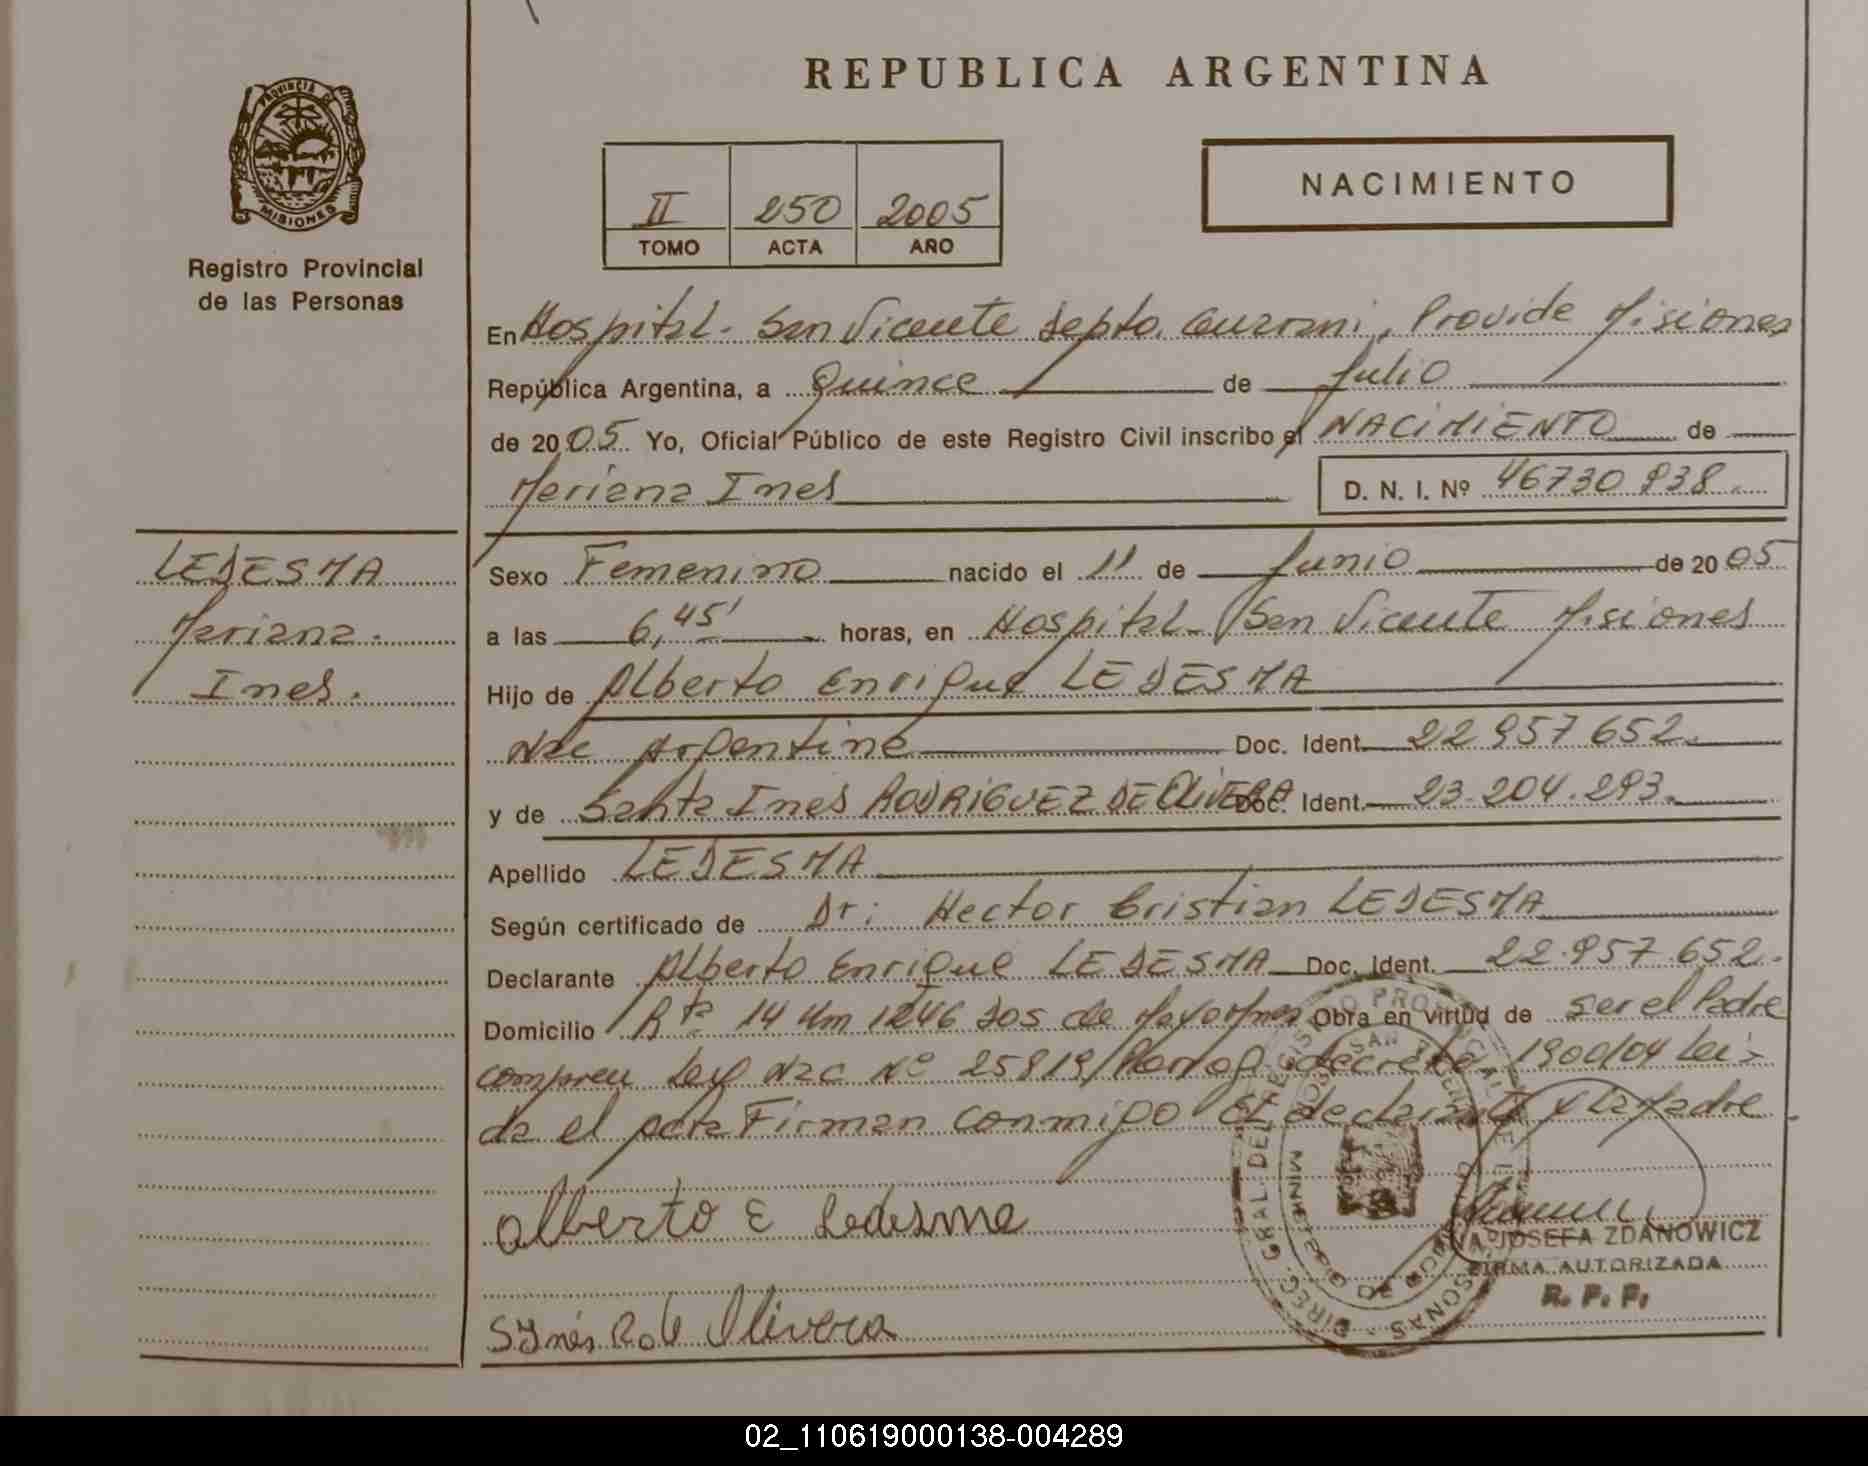 REPUBLICA ARGENTINA
PROVINCIA DE
MISIONES
Registro Provincial
de las Personas
II 250 2005
TOMO ACTA AÑO
NACIMIENTO
En Hospital - San Vicente Depto. Guarani, Prov de Misiones
República Argentina, a Quince de Julio
de 2005 Yo, Oficial Público de este Registro Civil inscribo el NACIMIENTO de
Mariana Ines
D. N. I. Nº 46730 938.
LEDESMA
Mariana.
Ines.
Sexo Femenino nacido el 11 de Junio de 2005
a las 6,45' horas, en Hospital - San Vicente Misiones
Hijo de Alberto Enrique LEDESMA
Nac Argentina Doc. Ident. 22 957 652.
y de Santa Ines RODRIGUEZ DE OLIVERA Doc. Ident. 23.204.293.
Apellido LEDESMA
Según certificado de Dr: Hector Cristian LEDESMA
Declarante Alberto Enrique LEDESMA Doc. Ident. 22.957 652.
Domicilio Rta 14 Km 1246 Dos de Mayo Mnes Obra en virtud de ser el Padre
Ley Nac Nº 25819 decreto 1900/04 Lei-
da el acta Firman conmigo El declarante y la Madre
Alberto E Ledesma
S Inés R. de Olivera
ANA JOSEFA ZDANOWICZ
FIRMA AUTORIZADA
R. P. P.
02_110619000138-004289